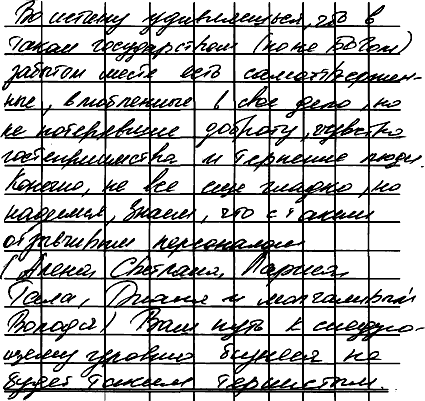 Воистину удивляешься, что в
таком государством (но не Богом)
забытом месте есть самоотвержен-
ные, влюбленные в свое дело, но
не потерявшие доброту, чувство
гостеприимства и терпение люди.
Конечно, не все еще гладко, но
надеемся, знаем, что с таким
отзывчивым персоналом
(Алена, Светлана, Лариса,
Галя, Диана и молчаливый
Володя) Ваш путь к следую-
щему уровню бизнеса не
будет таким тернистым.